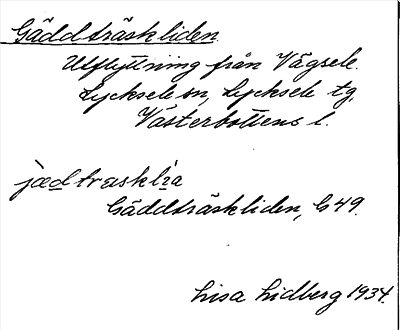 Gäddträskliden.
Utflyttning från Vägsele.
Lycksele sn, Lycksele tg,
Västerbottens l.
Gäddträskliden, G 49.
Lisa Lidberg 1934.